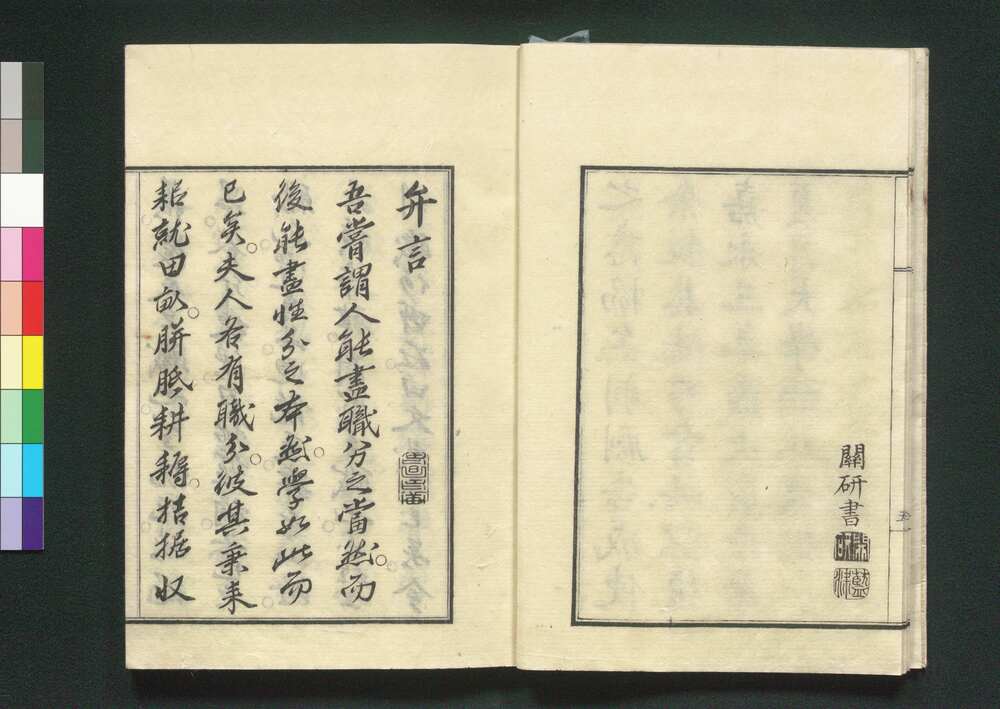 關研書
弁言
吾嘗謂人能盡職分之當然。而
後能盡性分之本然。學如此而
已矣。夫人各有職分。彼其秉耒
耜就田畝。胼胝耕耨。拮据収